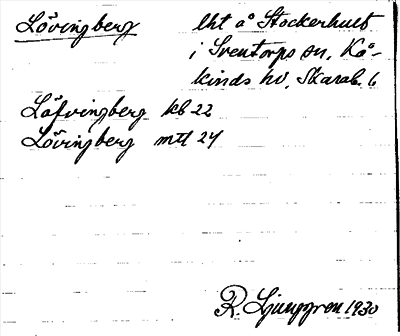 Lövingberg lht å Stockerhult
i Sventorps sn, Kå-
kinds hd, Skarab. l.
Löfvingberg kb 22
Lövingberg mtl 24
R. Ljunggren 1930